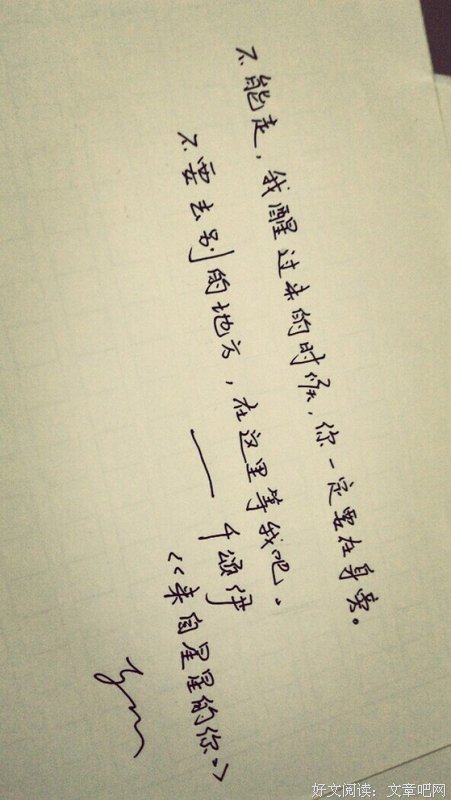 不能走，我醒过来的时候，你一定要在身旁。
不要去别的地方，在这里等我吧。
——千颂伊
《来自星星的你》
好文阅读：文章吧网